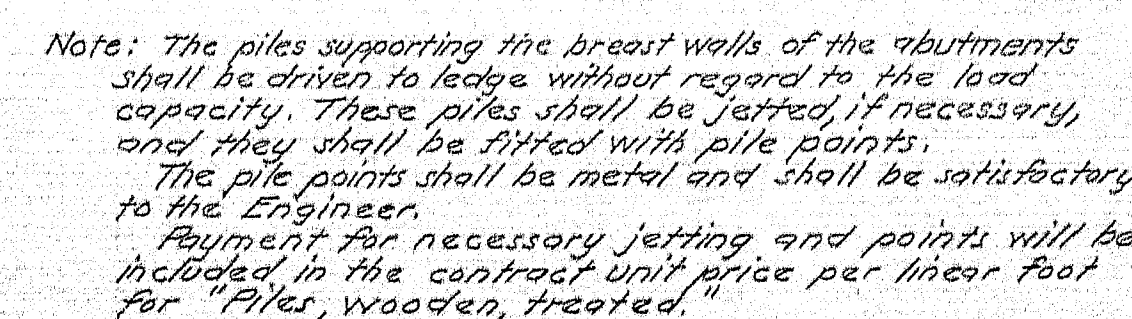 Note: The piles supporting the breast walls of the abutments
shall be driven to ledge without regard to the load
capacity. These piles shall be jetted, if necessary,
and they shall be fitted with pile points.
The pile points shall be metal and shall be satisfactory
to the Engineer.
Payment for necessary jetting and points will be
included in the contract unit price per linear foot
for "Piles, wooden, treated."